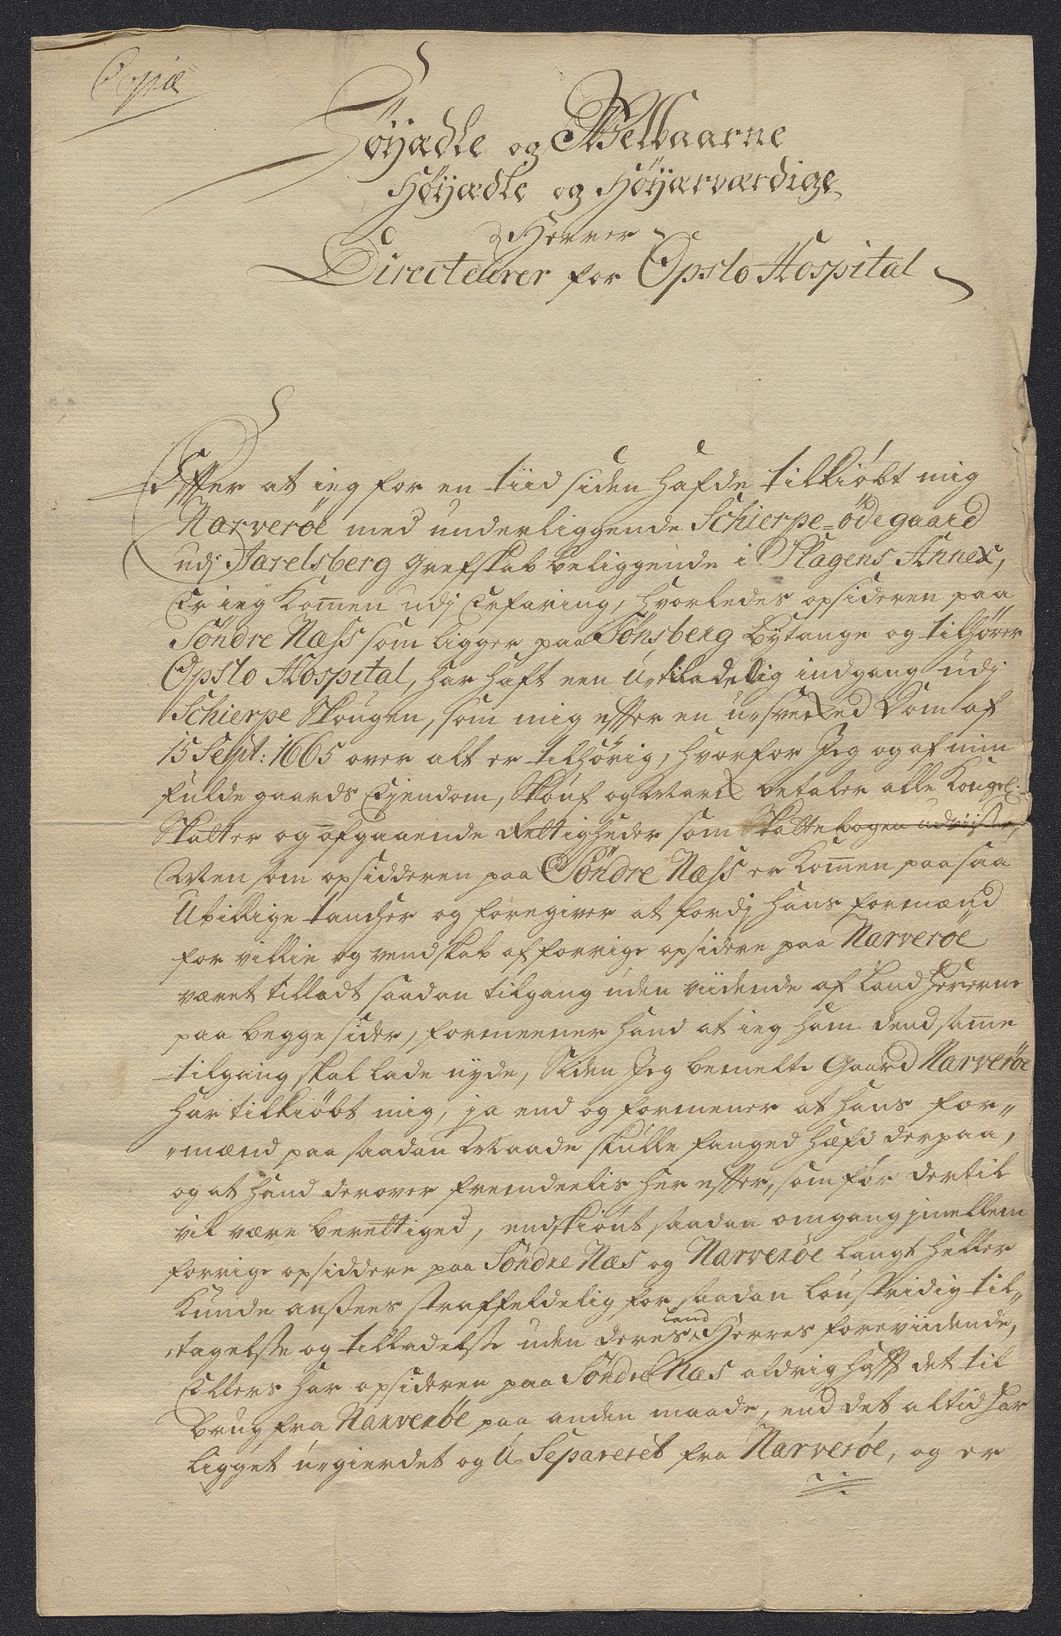 Copia
Høyædle og Welbaarne
Høyædle og Høyærværdige
Herrer
Directeurer for Opslo Hospital
Efter at ieg for en tiid siden hafde tilkiøbt mig
Narverøe med underliggende Schierpe=ødegaard
udj Jarelsberg Grefskab beliggende i Slagens Annex,
Er ieg Komen udj Erfaring, hvorledes opsideren paa
Søndre Næss som ligger paa Tønsberg bytange og tilhører
Opslo Hospital, har haft een U-tiladelig indgang udj
Schierpe Skougen, som mig efter en u-svecked Dom af
15 Sept: 1665 over alt er tilhørig, hvorfor Jeg og af min
fulde gaards Ejendom, Skouf og Marck betaler alle Kongel:
Skatter og afgaaende Rettigheder som Skattebogen udviser,
Men som opsidderen paa Søndre Næss er Komen paa saa
Ubillige tancher og foregiver at fordj hans formænd
for villie og vendskab af forrige opsidere paa Narverøe
været tilladt saadan tilgang uden viidende af Landherrerne
paa begge sider, formeener hand at ieg ham dend same
tilgang skal lade nyde, Siden Jeg bemelte Gaard Narverøe
har tilkiøbt mig, ja end og formener at hans for„
„mænd paa saadan Maade skulle fanged Hæfd derpaa,
og at hand derover fremdeelis her efter, som før dertil
vil være berettiged, endskiønt saadan omgang jmellem
forrige opsiddere paa Søndre Næs og Narverøe langt heller
Kunde ansees straffeldelig for saadan Løuskridig til„
„tagelse og tilladelse uden deres Land Herres foreviidende,
Ellers har opsideren paa Søndre Næs aldrig hafft det til
brug fra Narverøe paa anden maade, end det altid har
ligget u-gierdet og U-Separeret fra Narverøe, og er